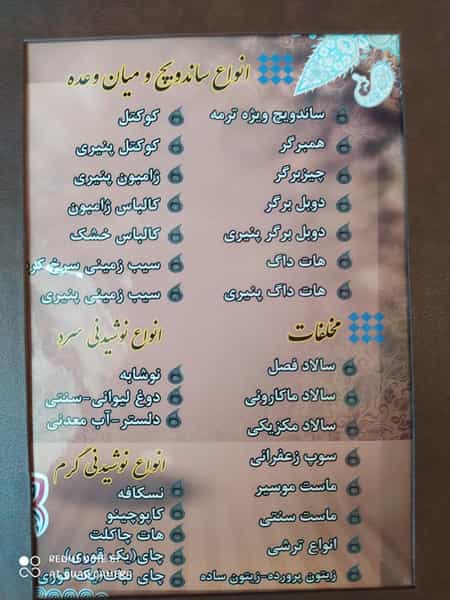 انواع ساندویچ و میان وعده
ساندویچ ویژه ترمه
همبرگر
چیزبرگر
دوبل برگر
دوبل برگر پنیری
هات داگ
هات داگ پنیری
کوکتل
کوکتل پنیری
ژامبون پنیری
کالباس ژامبون
کالباس خشک
سیب زمینی سرخ
سیب زمینی پنیری
مخلفات
سالاد فصل
سالاد ماکارونی
سالاد مکزیکی
سوپ زعفرانی
ماست موسیر
ماست سنتی
انواع ترشی
زیتون پرورده-زیتون ساده
انواع نوشیدنی سرد
نوشابه
دوغ لیوانی-سنتی
دلستر-آب معدنی
انواع نوشیدنی گرم
نسکافه
کاپوچینو
هات چاکلت
چای(یک قوری)
چای
REDMI NOTE 8T
AI QUAD CAMERA